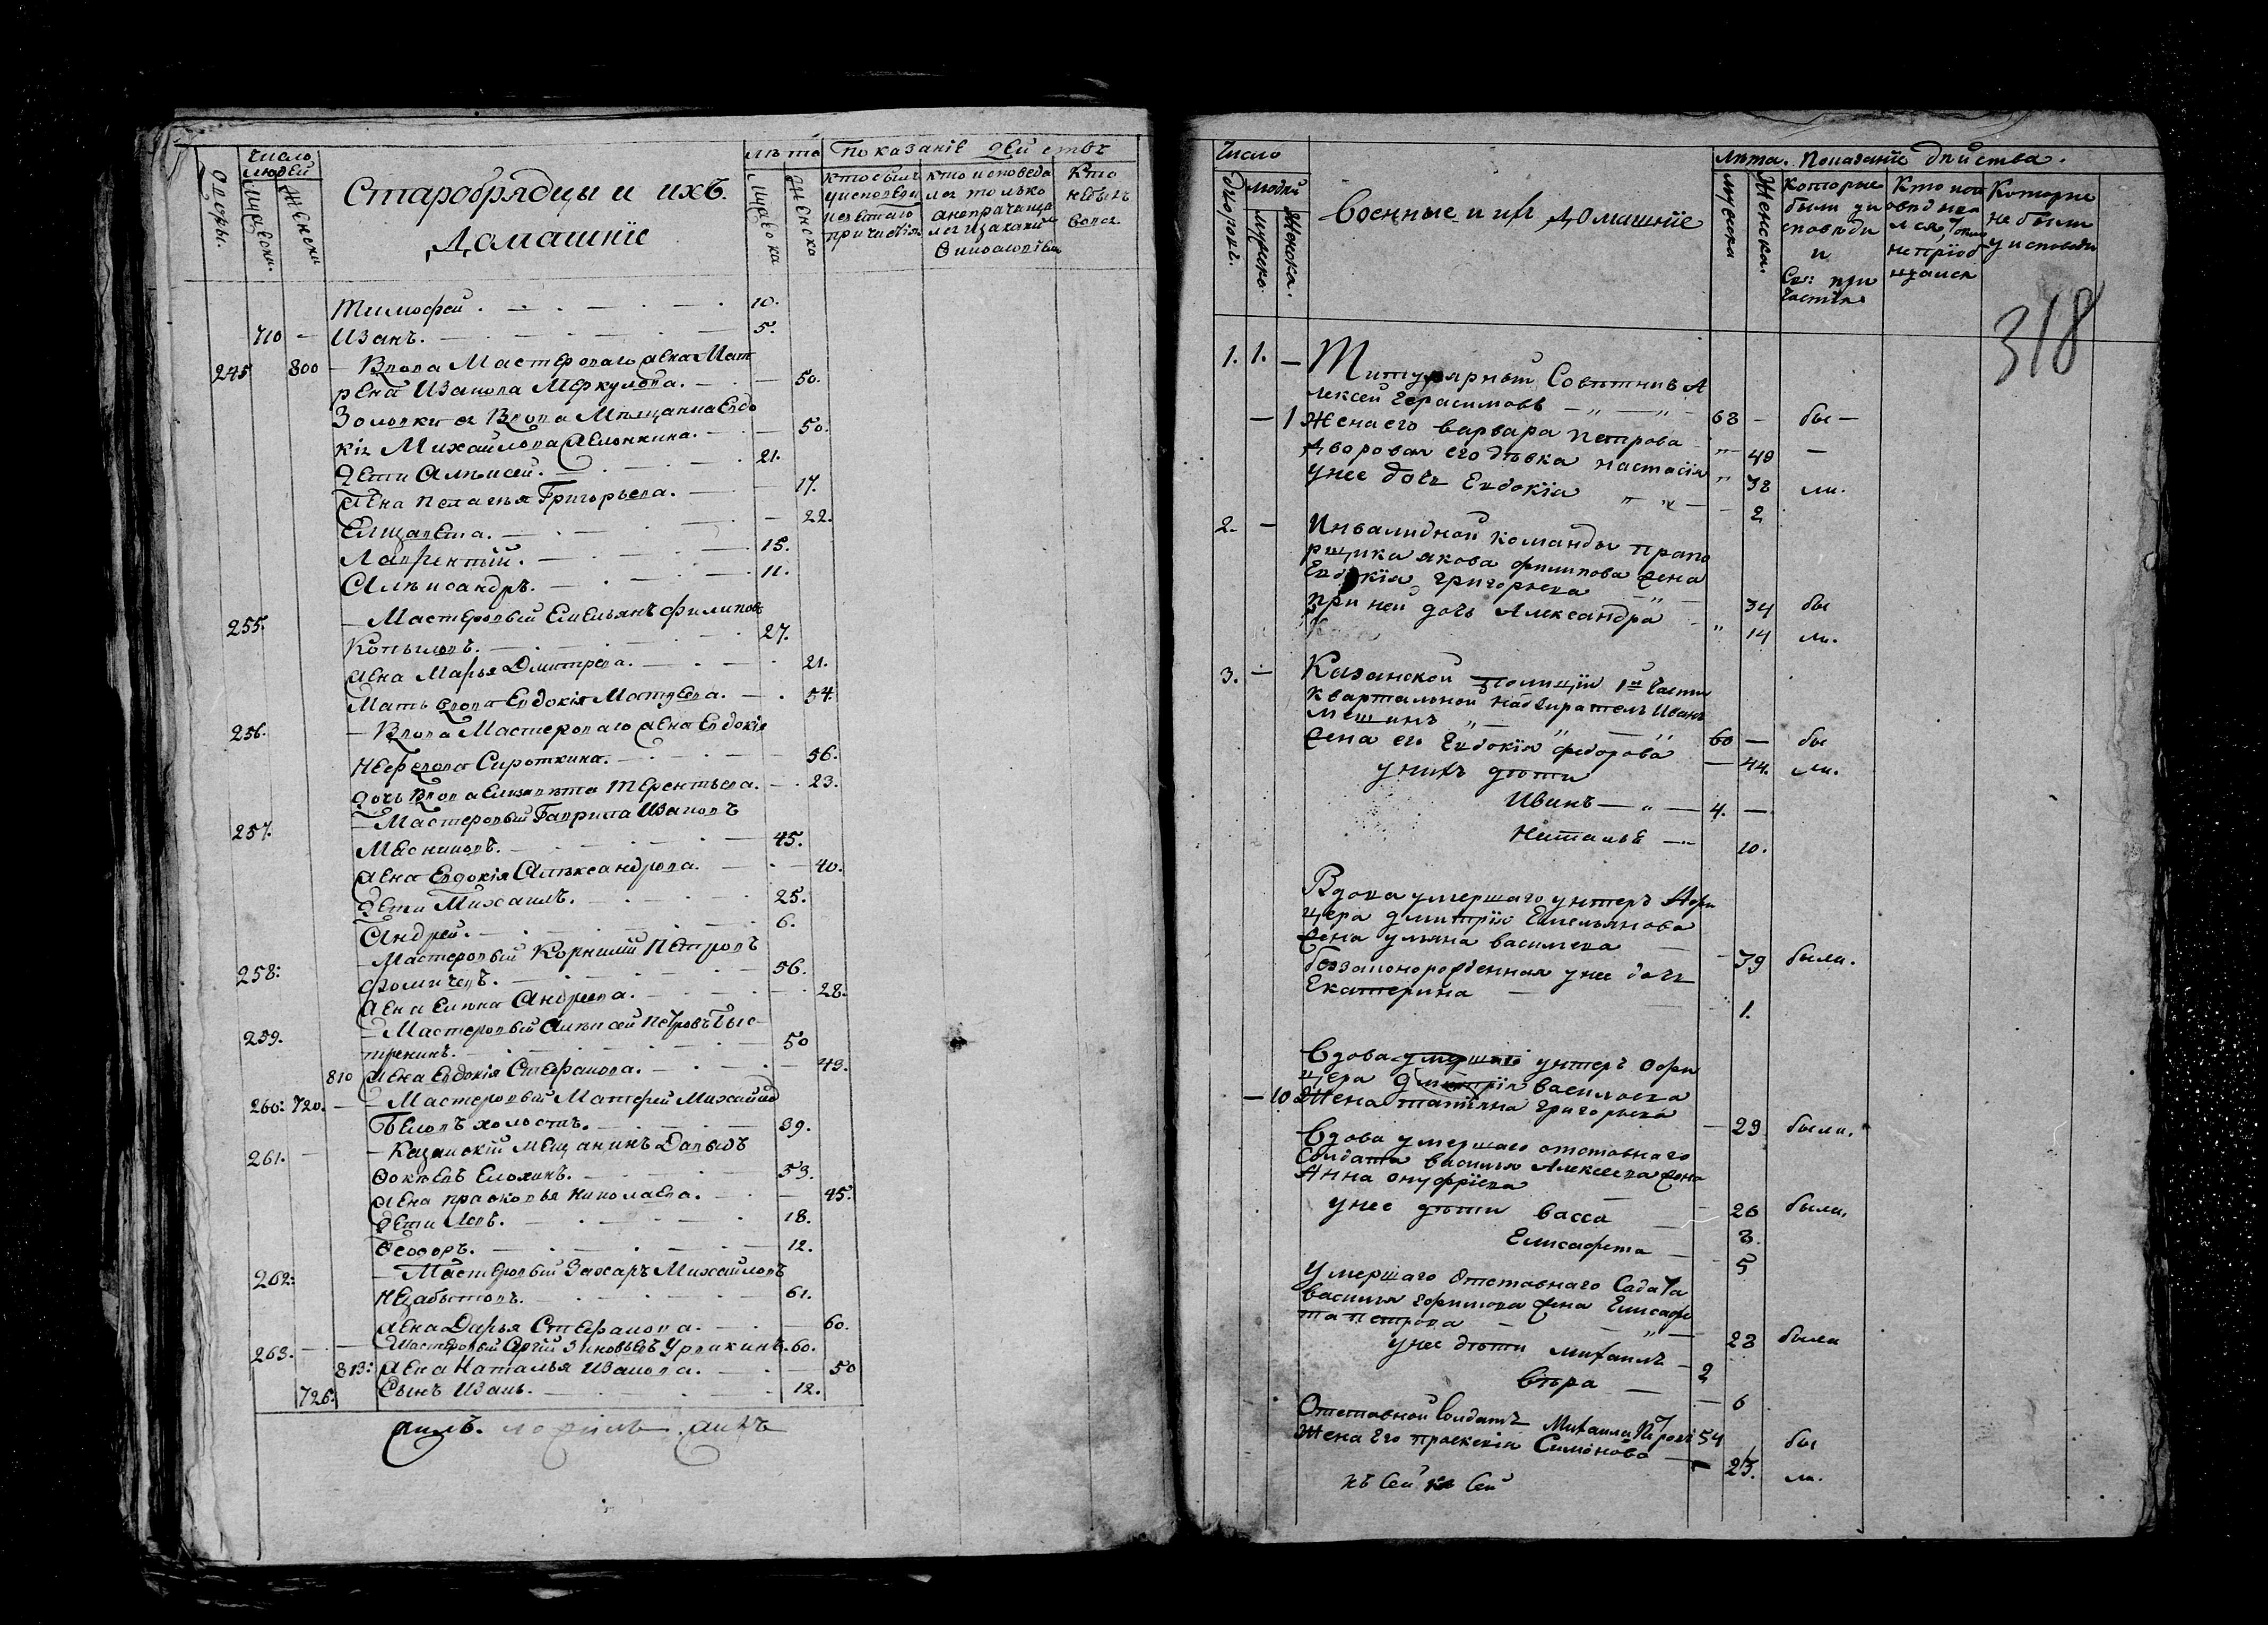 число людей
дворы.
мужеска.
женски
Старобрядцы и ихъ
домашніе
лѣта
мужеска
женско
Показаніе действъ
Кто
не былъ
вовсе
Тимофей. 10.
710 Иванъ. 5.
245 800 Вдова Мастероваго жена Мат
рена Иванова Меркулова. 50.
Золовка ея Вдова Мещанка Евдо
кія Михайлова 50.
Дети Алексей. 21.
Жена Пелагея Григорьева. 17.
Елизавета. 22.
Лаврентій. 15.
Александръ. 11.
255. Мастеровый Емельянъ Филиповъ
Копыловъ. 27.
Жена Марья Дмитрева. 21.
Мать вдова Евдокія Матвеева. 54.
256. Вдова Мастероваго жена Евдокія
Нефедова Сироткина. 56.
Дочь вдова Елизавета Терентьева. 23.
257. Мастеровый Гаврила Ивановъ
Масниковъ. 45.
Жена Евдокія Александрова. 40.
Дети Михаилъ. 25.
Андрей. 6.
258: Мастеровый Корнилий Петровъ
Фомичевъ. 56.
Жена Елена Андреева. 28.
259. Мастеровый Алексей Петровъ Быс-
тренинъ. 50
810 Жена Евдокія Стефанова. 49.
260: 720. Мастеровый Матфей Михайловъ
Беловъ холостъ. 39.
261. Казанскій мещанинъ Давыдъ
Фоктевъ Елохинъ. 53.
Жена Прасковья Николаева. 45.
Дети Левъ. 18.
Феодоръ. 12.
262: Мастеровый Захаръ Михайловъ
Незабытовъ. 61.
Жена Дарья Стефанова. 60.
263. Мастеровый Сергій Зиновьевъ Урлихинъ. 60.
813: Жена Наталья Иванова. 50
726. Сынъ Иванъ. 12.
Число
дворовъ.
людей
мужеско.
женска.
Военные и ихъ домашніе
Лѣта.
мужеска
Женска.
Показаніе дѣйства.
Которые
были у и
сповѣди
и
Св: при
частія
Которые
не были
у исповеди
318
1. 1. Титулярный Совѣтникъ А
лексей Герасимовъ 68 бы
1 Жена его варвара петрова 49
Дворовая его дѣвка настасія 38 ли.
у нее дочь Евдокія 2
2. Инвалидной команды прапо
рщика якова филипова жена
Евдокія григорьева 34 бы
при ней дочь Александра 14 ли.
3. Казанской полиціи 1й части
квартальной надзиратель Иванъ
60 бы
жена его Евдокія федорова 44. ли.
у нихъ дѣти
Иванъ 4.
Наталья 10.
Вдова умершаго унтеръ Афи
цера дмитрія Емельянова
жена ульяна васильева 39 была.
беззаконорожденная у нее дочь
Екатерина 1.
Вдова умершаго унтеръ офи
цера дмитрія васильева
10 Жена татіяна григорьева 29 была.
Вдова умершаго отставнаго
Солдата василья Алексеева жена
Анна онуфріева 26 была.
у нее дѣти васса 3.
Елисафета 5
умершаго отставнаго Садата
василья жена Елисафе
та петрова 28 была
у нее дѣти михаилъ 2
вѣра 6
Отставной Солдатъ Михаила 54 бы
Жена Его праскевія Симонова 25. ли.